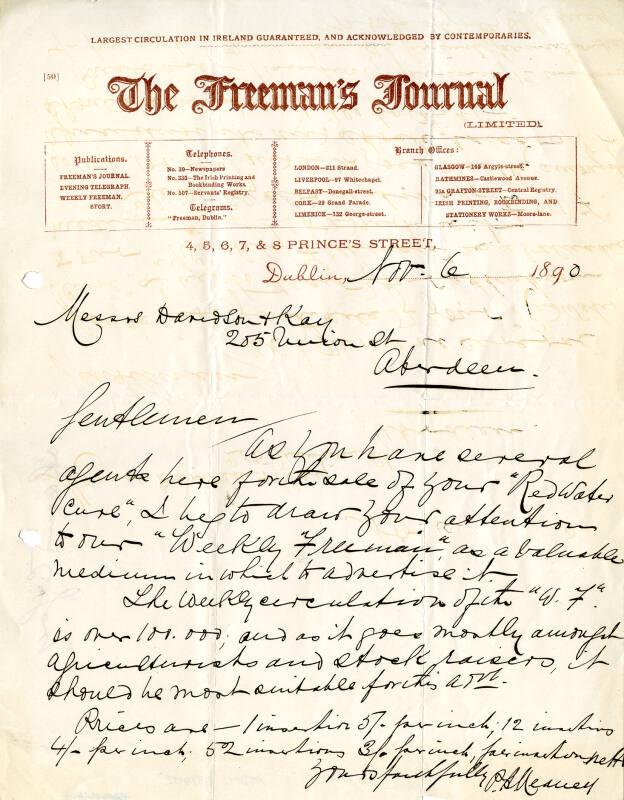 LARGEST CIRCULATION IN IRELAND GUARANTEED, AND ACKNOWLEDGED BY CONTEMPORARIES.
[50]
The Freeman's Journal
(LIMITED).
Publications.
FREEMAN'S JOURNAL.
EVENING TELEGRAPH.
WEEKLY FREEMAN.
SPORT.
Telephones.
No. 30—Newspapers
No. 335—The Irish Printing and
Bookbinding Works.
No. 507—Servants' Registry.
Telegrams.
"Freeman, Dublin."
Branch Offices:
LONDON—211 Strand.
LIVERPOOL—97 Whitechapel.
BELFAST—Donegall-street.
CORK—29 Grand Parade.
LIMERICK—132 George-street.
GLASGOW—165 Argyle-street.
RATHMINES—Castlewood Avenue.
21A GRAFTON-STREET—Central Registry.
IRISH PRINTING, BOOKBINDING, AND
STATIONERY WORKS—Moore-lane.
4, 5, 6, 7, & 8 PRINCE'S STREET,
Dublin, Nov. 6 1890
Messrs Davidson & Kay
205 Union St
Aberdeen.
Gentlemen
As you have several
agents here for the sale of your "Red Water
Cure", I beg to draw your attention
to our "Weekly Freeman", as a valuable
medium in which to advertise it
The weekly circulation of the "W. F."
is over 100.000, and as it goes mostly amongst
agriculturists and stock raisers, it
should be most suitable for this advt.
Prices are — 1 insertion 5/- per inch; 12 insertions
4/- per inch; 52 insertions 3/- per inch, per insertion nett
Yours faithfully